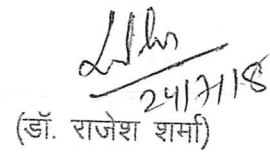 24/7/18
(डॉ. राजेश शर्मा)